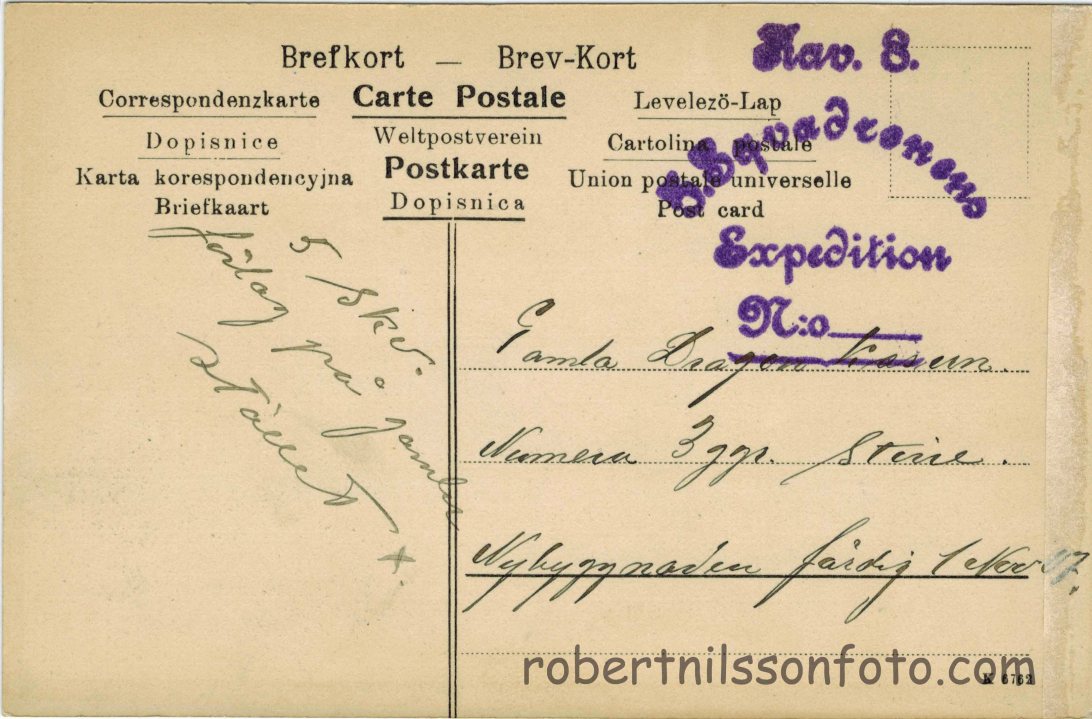 Brefkort — Brev-Kort
Correspondenzkarte
Carte Postale
Levelező-Lap
Dopisnice
Weltpostverein
Cartolina postale
Karta korespondencyjna
Postkarte
Union postale universelle
Briefkaart
Dopisnica
Post card
Kav. 8.
Sqvadronens
Expedition
N:o
5 /skö
förlag på gamla
Stället +.
Gamla Dragon Kasern.
Numera 3 ggr. större.
Nybyggnaden färdig 1 Nov 17.
K 6762
robertnilssonfoto.com